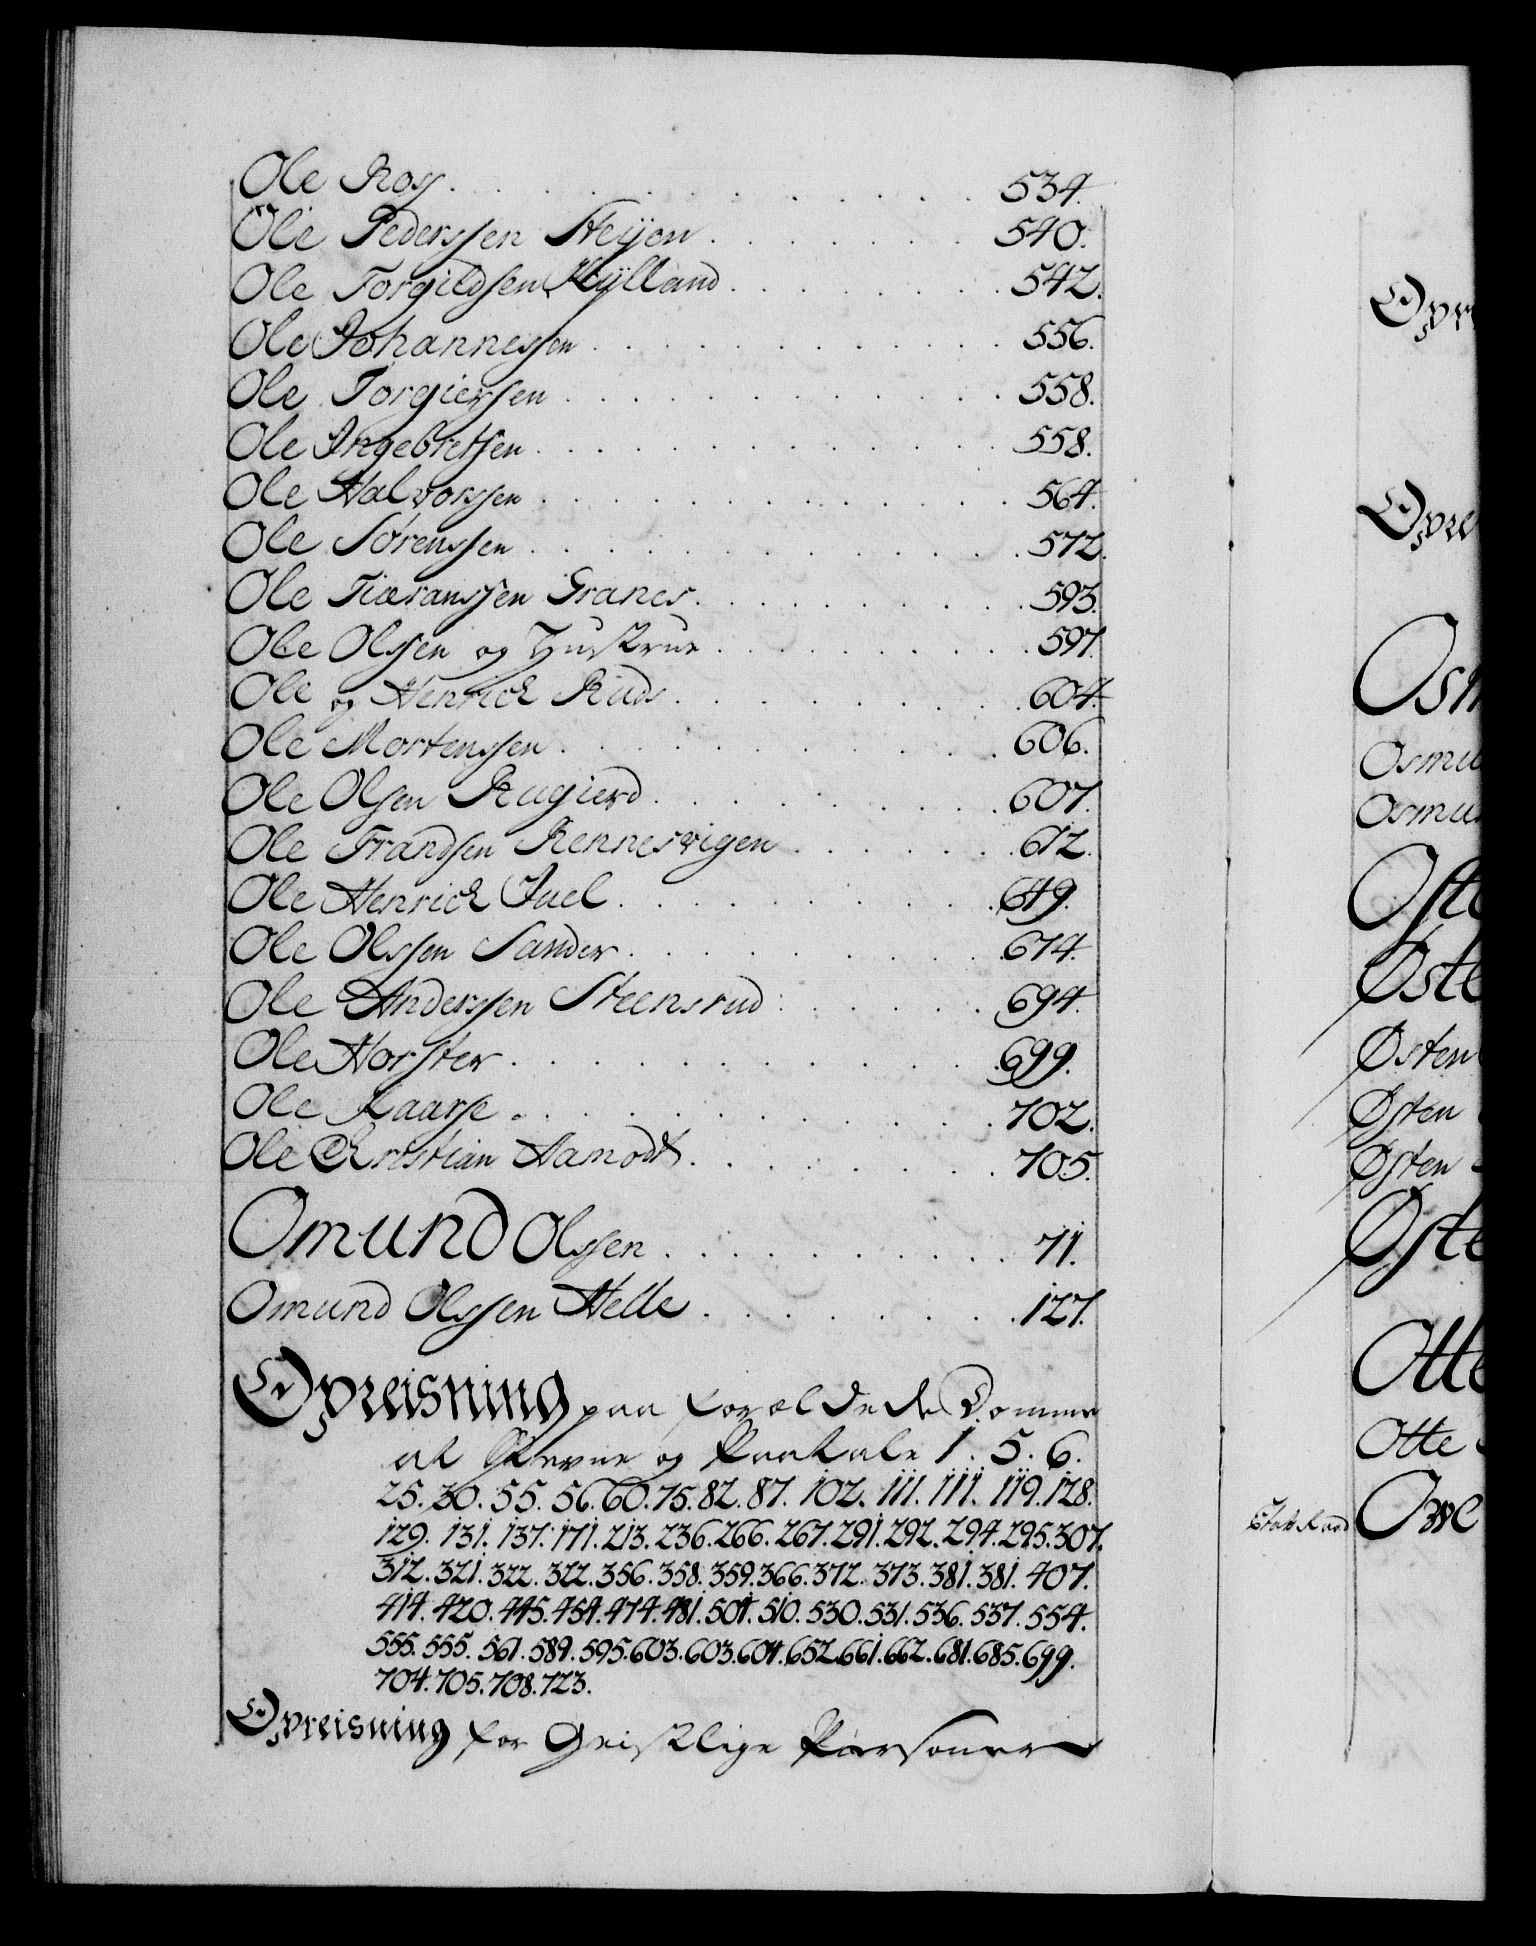 Ole Rog . . . . . . . . . . 534.
Ole Pederssen Steijen . . . . . . 540.
Ole Torgildsen Hÿlland . . . . . . 542.
Ole Johannessen . . . . . . . . 556.
Ole Torgierssen . . . . . . . . 558.
Ole Ingebretsen . . . . . . . . 558.
Ole Halvorssen . . . . . . . . 564.
Ole Sørenssen . . . . . . . . 572.
Ole Tiæranssen Granes . . . . . . 593.
Ole Olssen og Hustrue . . . . . . 597.
Ole og Henrich Ruds . . . . . . 604.
Ole Mortenssen . . . . . . . . 606.
Ole Olsen Rugierd . . . . . . . 607.
Ole Frandsen Rennesvigen . . . . 612.
Ole Henrich Juel . . . . . . . 649.
Ole Olssen Sander . . . . . . . 674.
Ole Anderssen Steensrud . . . . . 694.
Ole Horster . . . . . . . . . 699.
Ole Kaarse . . . . . . . . . 702.
Ole Christian Aamodt . . . . . . 705.
Omund Olssen . . . . . . . . 71.
Omund Olssen Helle . . . . . . 127.
Opreisning paa forældede Domme
at Stevne og Paatale 1. 5. 6.
25. 30. 55. 56. 60. 75. 82. 87. 102. 111. 111. 119. 128.
129. 131. 137. 171. 213. 236. 266. 267. 291. 292. 294. 295. 307.
312. 321. 322. 322. 356. 358. 359. 366. 372. 373. 381. 381. 407.
414. 420. 445. 454. 474. 481. 501. 510. 530. 531. 536. 537. 554.
555. 555. 561. 589. 595. 603. 603. 604. 652. 661. 662. 681. 685. 699.
704. 705. 708. 723.
Opreisning for Geistlige Personer
Opr
Opre
Osm
Osmu
Osmu
Oste
Øste
Østen
Østen
Østen
Øste
Otte
Otte
Ove